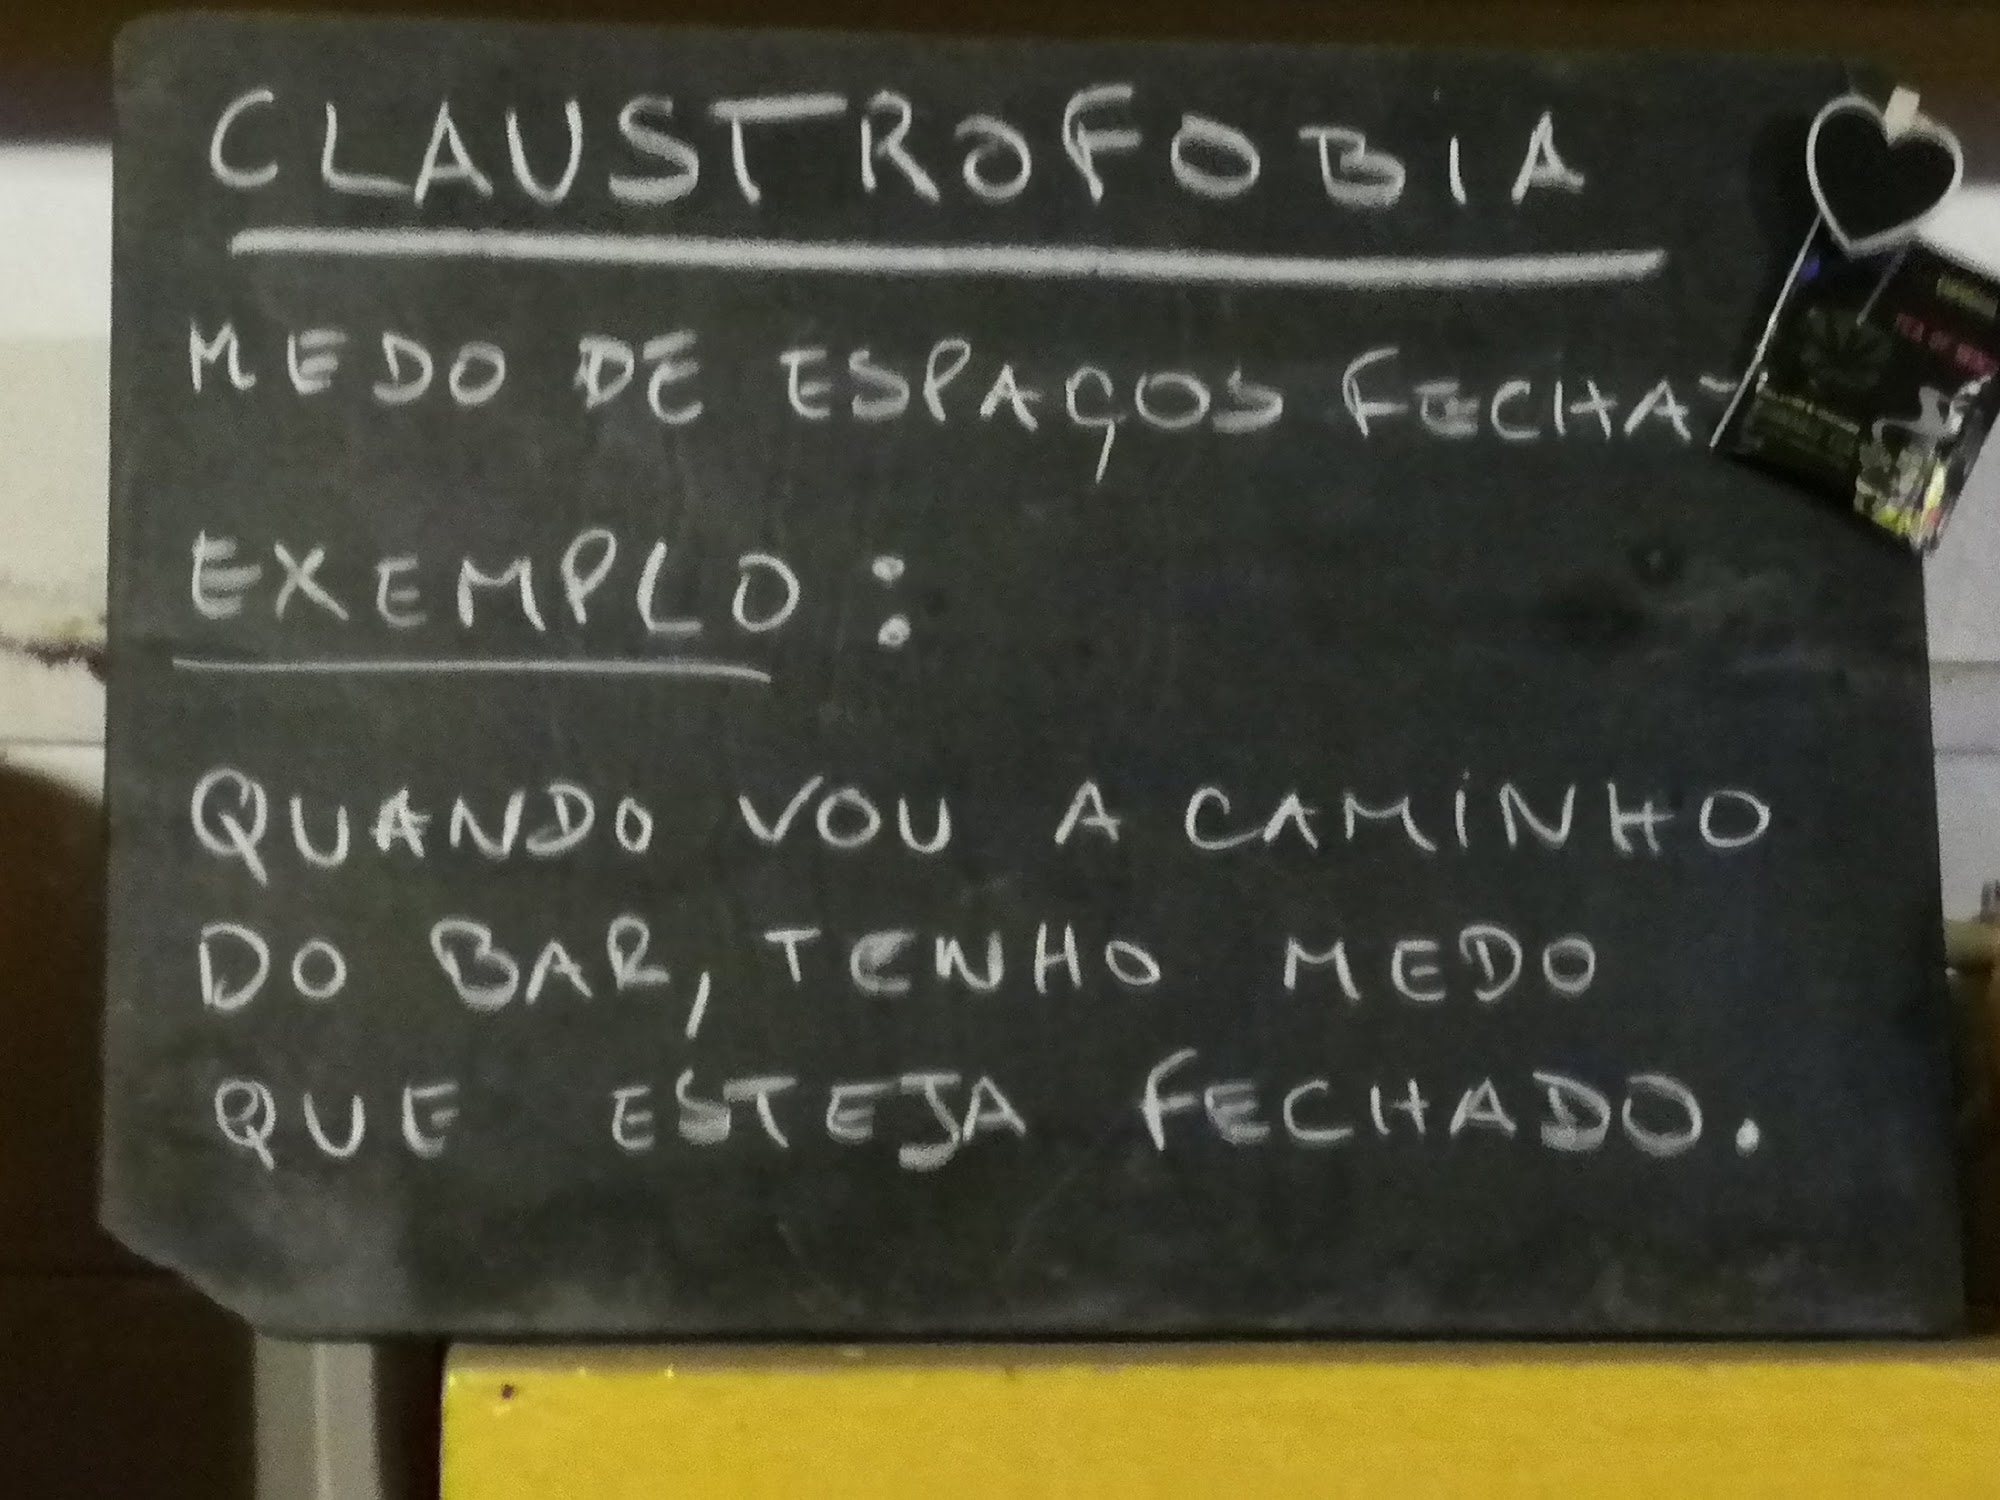 CLAUSTROFOBIA
MEDO DE ESPAÇOS FECHA
EXEMPLO:
QUANDO VOU A CAMINHO
DO BAR, TENHO MEDO
QUE ESTEJA FECHADO.